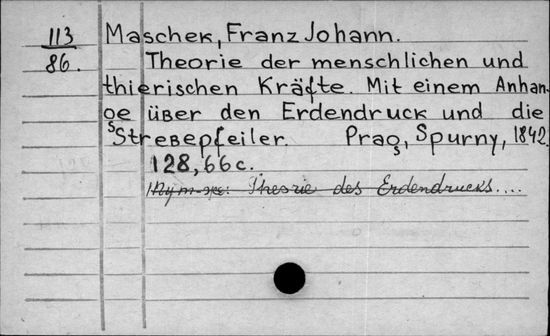 113 Maschek, Franz Johann.
86. Theorie der menschlichen und
thierischen Kräfte. Mit einem Anhan-
ge über den Erdendruck und die
Strebepfeiler. Prag, Spurny, 1842.
128, 66 c.
Theorie des Erdendrucks....